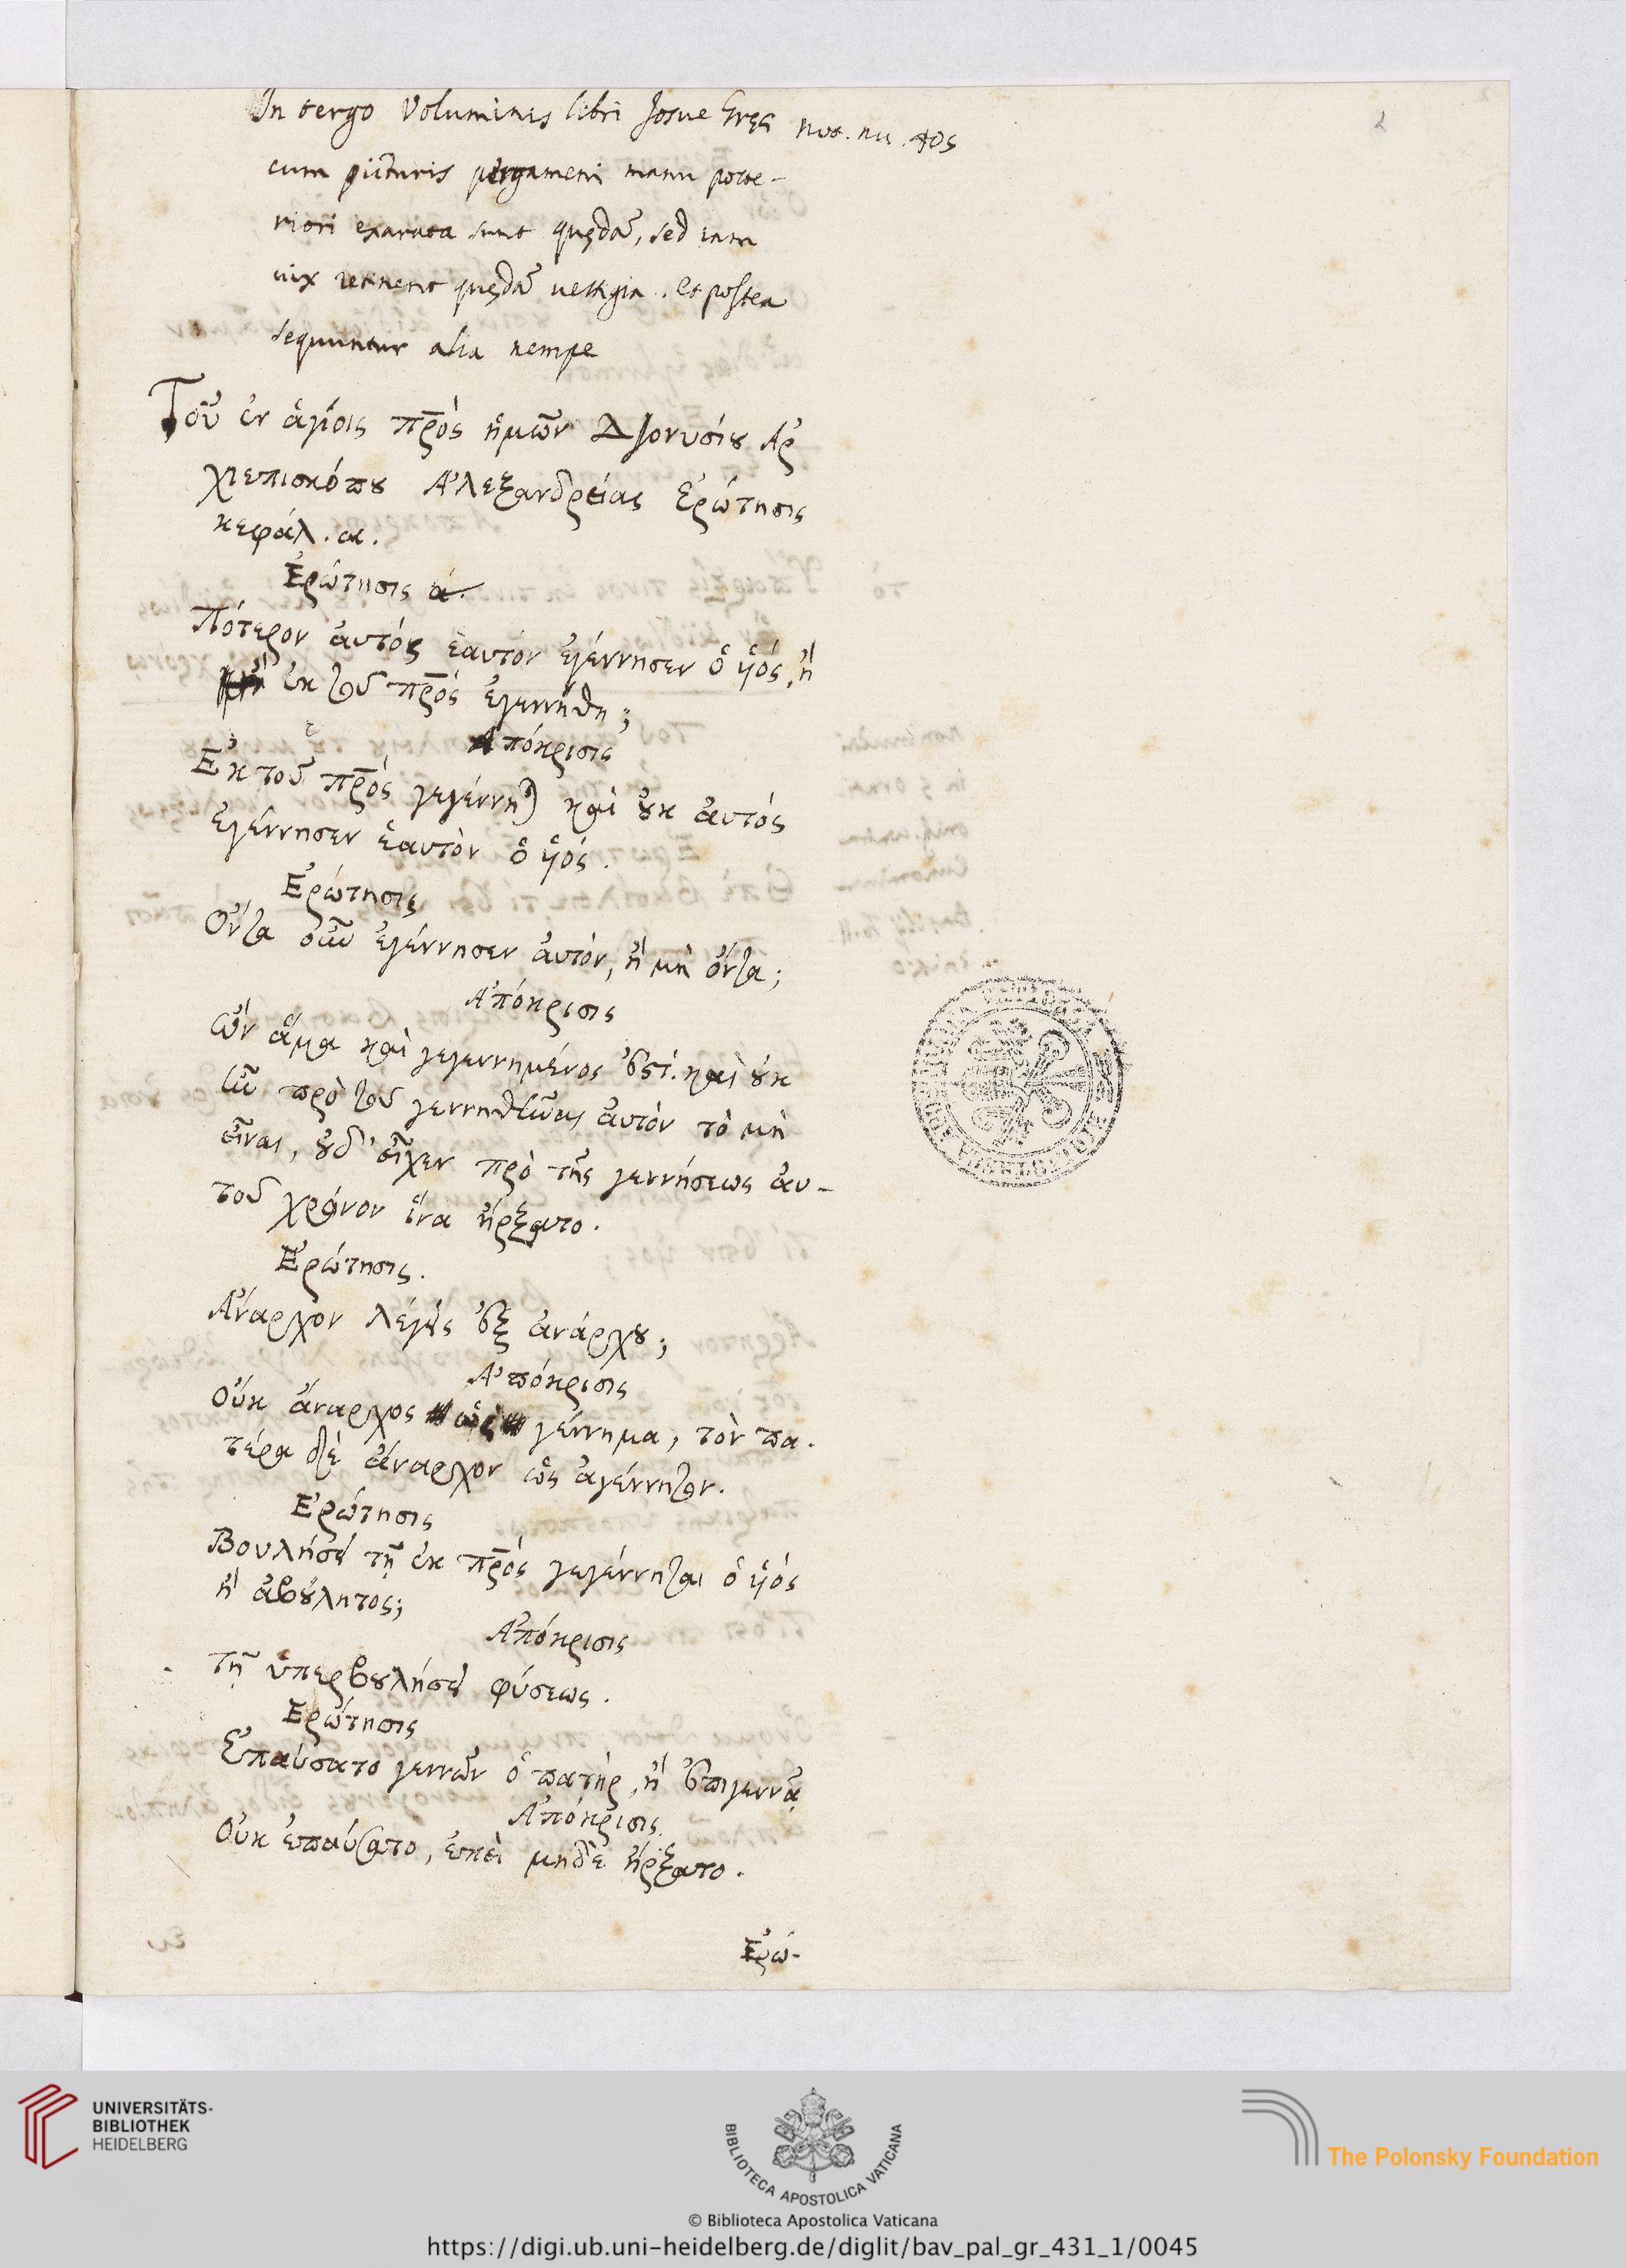 In tergo Voluminis libri Josue Gręc not. nu. 405
cum picturis pergameni manu poste-
riori exarata sunt quędã, sed iam
uix retinent quędã uestigia. et postea
sequuntur alia nempe
Τοῦ ἐν ἁγίοις πρ̅ὸς ἡμῶν Διονυσίȣ Ἀρ
χιεπισκόπȣ Ἀλεξανδρείας Ἐρώτησις
κεφάλ. α.
Ἐρώτησις ά.
Πότερον ἀυτὸς ἑαυτὸν ἐγέννησεν ὁ ὑιός, ἢ
ἐκ τοῦ πρ̅ὸς ἐγεννήθη;
Ἀπόκρισις
Ἐκ τοῦ πρ̅ὸς γεγέννη καὶ ȣκ ἀυτός
ἐγέννησεν ἑαυτὸν ὁ ὑιός.
Ἐρώτησις
Ὄντα οὖν ἐγέννησεν ἀυτὸν, ἢ μὴ ὄντα;
Ἀπόκρισις
Ὢν ἅμα καὶ γεγεννημένος ἐστί. καὶ ȣκ
ἦν πρὸ τοῦ γεννηθῆναι ἀυτὸν τὸ μὴ
εἶναι, ȣδ' εἶχεν πρὸ τῆς γεννήσεως ἀυ-
τοῦ χρόνον ἵνα ἤρξατο.
Ἐρώτησις.
Ἄναρχον λέγεις ἐξ ἀνάρχȣ;
Ἀπόκρισις
Οὐκ ἄναρχος ὡς γέννημα, τὸν πα.
τέρα δὲ ἄναρχον ὡς ἀγέννητον.
Ἐρώτησις
Βουλήσει τῇ ἐκ πρ̅ὸς γεγέννηται ὁ ὑιός
ἢ ἀβȣλητος;
Ἀπόκρισις
Τῇ ὑπερβȣλήσει φύσεως.
Ἐρώτησις
Ἐπαύσατο γεννῶν ὁ πατήρ, ἢ ἔτι γεννᾷ
Ἀπόκρισις.
Οὐκ ἐπαύσατο, ἐπεὶ μηδὲ ἤρξατο.
Ἐρώ-
UNIVERSITÄTS-
BIBLIOTHEK
HEIDELBERG
BIBLIOTECA APOSTOLICA VATICANA
The Polonsky Foundation
© Biblioteca Apostolica Vaticana
https://digi.ub.uni-heidelberg.de/diglit/bav_pal_gr_431_1/0045